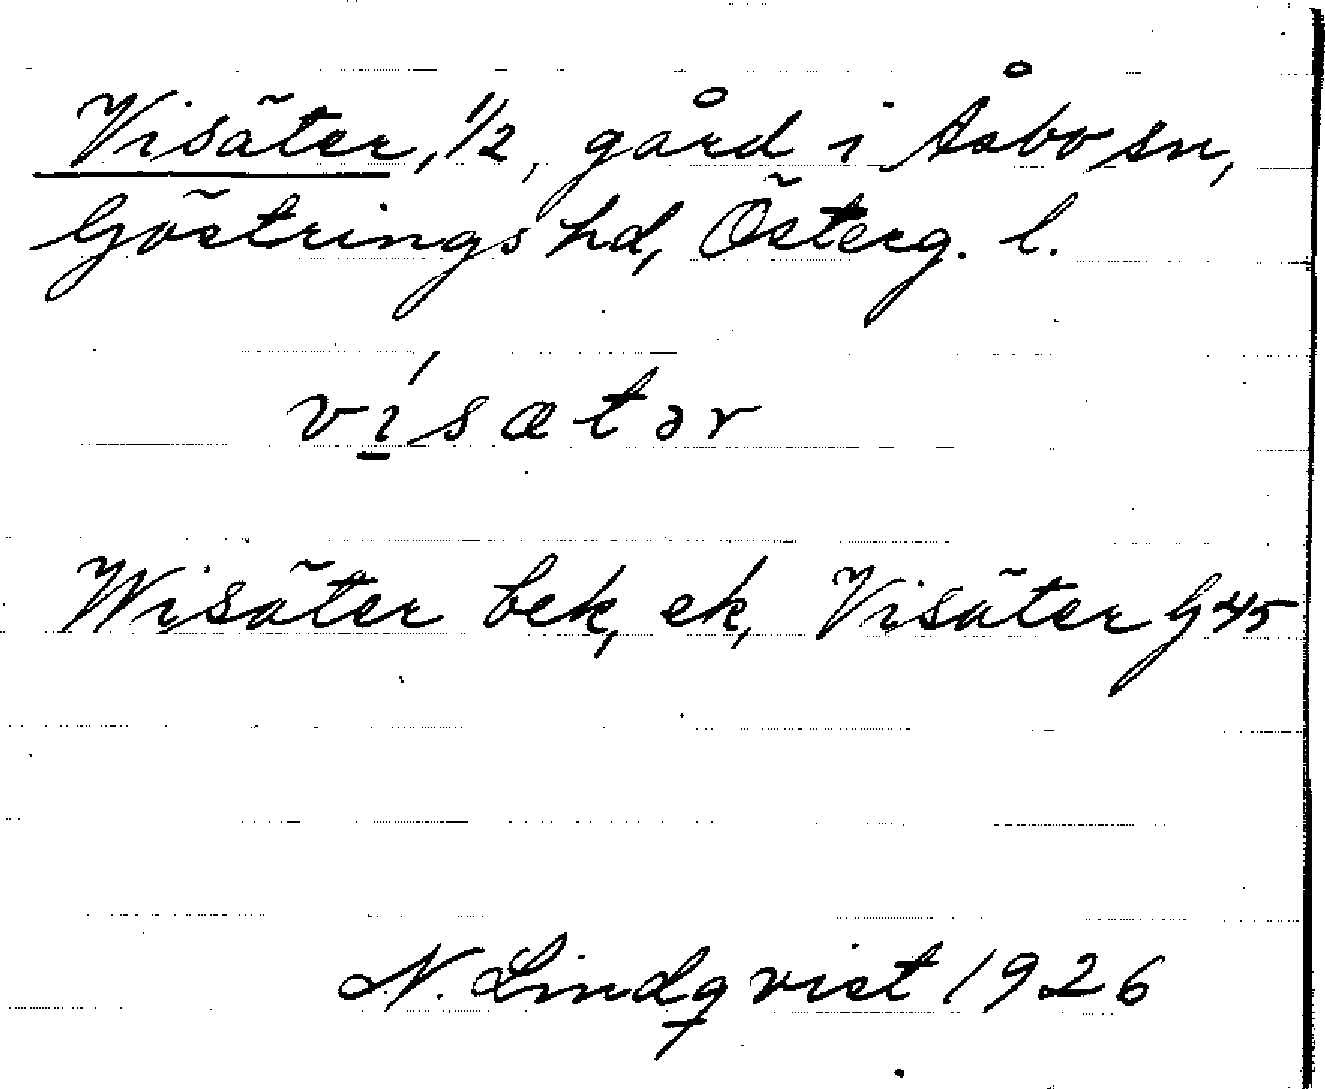 Visäter, 1/2, gård i Åsbo sn,
Göstrings hd, Österg. l.
vísætər
Wisäter bek, ek, Visäter G 45
N. Lindqvist 1926